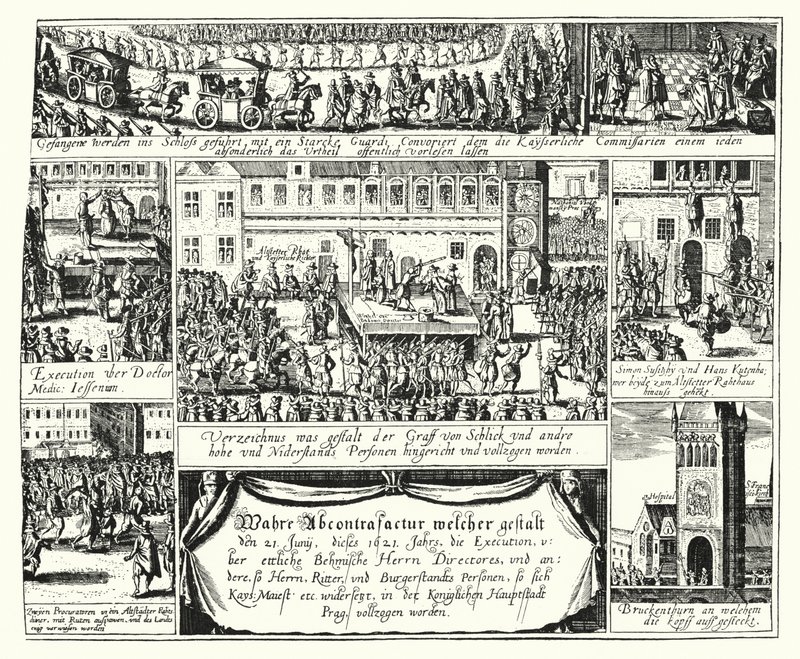 Gefangene werden ins Schloss gefuhrt, mit ein Starcke Guardi Convoyiert, dem die Kaÿserliche Commissarien einem ieden
absonderlich das Urtheil offentlich vorlesen lassen
Altstetter Raht
und Keyserliche Richter
Execution vber Doctor
Medic: Iessenium.
Simon Suschhÿ vnd Hans Kutenha:
wer beyde zum Altstetter Rahthaus
hinauss gehekt.
Verzeichnus was gestalt der Graff von Schlick vnd andre
hohe vnd Niderstands Personen hingericht vnd vollzogen worden.
Wahre Abcontrafactur welcher gestalt
den 21. Junij, dieses 1621. Jahrs. die Execution, v:
ber ettliche Behmische Herrn Directores, vnd an:
dere, so Herrn, Ritter, vnd Burgerstandts Personen, so sich
Kays: Maiest: etc. widersetzt, in der Königlichen Hauptstadt
Prag, vollzogen worden.
Hospital
S. Franc
Zweyen Procuratoren vnd ein Altstädter Rahts
diner, mit Ruten, vnd des Landes
ewig verwiesen worden
Bruckenthurn an welchem
die kopff auff gesteckt.